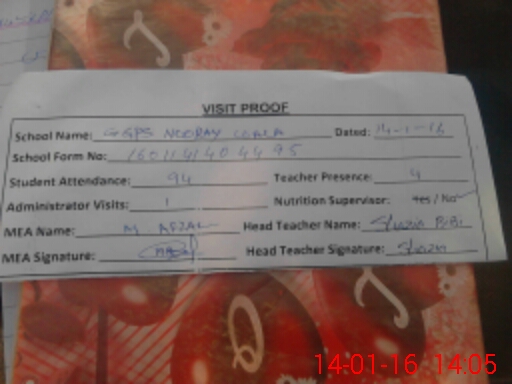 VISIT PROOF
School Name: GGPS NOORAY WALA Dated: 14-1-16
School Form No: 1601141404495
Student Attendance: 94 Teacher Presence: 4
Administrator Visits: 1 Nutrition Supervisor: Yes / No
MEA Name: M AFZAL Head Teacher Name: Shazia BiBi
MEA Signature: Head Teacher Signature: Shazia
14-01-16 14:05